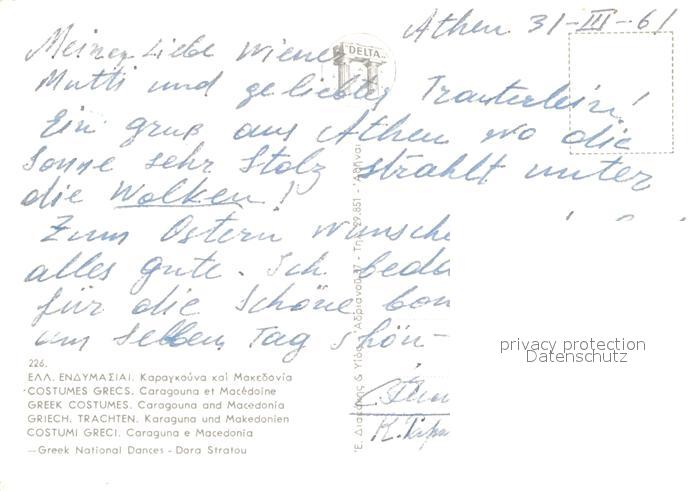 Athen 31-III-61
Meiner Liebe Wiener
Mutti und geliebtes Trauterlein!
Ein gruß aus Athen wo die
Sonne sehr Stolz strahlt unter
die Wolken!
Zum Ostern wünsche
alles gute. Ich beda
für die Schöne bon
am Selben Tag schön-
DELTA
226.
ΕΛΛ. ΕΝΔΥΜΑΣΙΑΙ. Καραγκούνα καὶ Μακεδονία
COSTUMES GRECS. Caragouna et Macédoine
GREEK COSTUMES. Caragouna and Macedonia
GRIECH. TRACHTEN. Karaguna und Makedonien
COSTUMI GRECI. Caraguna e Macedonia
—Greek National Dances - Dora Stratou
Ἀδριανοῦ 37 - Τηλ. 29.851 - Ἀθῆναι
privacy protection
Datenschutz